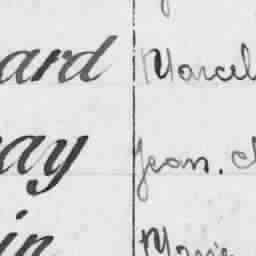 ard Marcel
ay Jean. C
in Marie